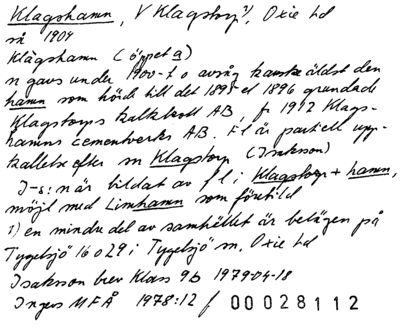 Klagshamn, V Klagstorp 1), Oxie hd
rå 1904
klàgshamn (öppet a)
n gavs under 1900-t o avsåg kanske äldst den
hamn som hörde till det 1895 el 1896 grundade
Klagstorps kalkbrott AB, fr 1912 Klags-
hamns cementverks AB. Fl är partiell upp-
kallelse efter sn Klagstorp (Isakson)
I-s: n är bildat av fl i Klagstorp + hamn,
möjl med Limhamn som förebild
1) en mindre del av samhället är belägen på
Tygelsjö 16029 i Tygelsjö sn, Oxie hd
Isaksson brev Klass 9b 1979-04-18
Ingers MFÅ 1978:12 f 00028112